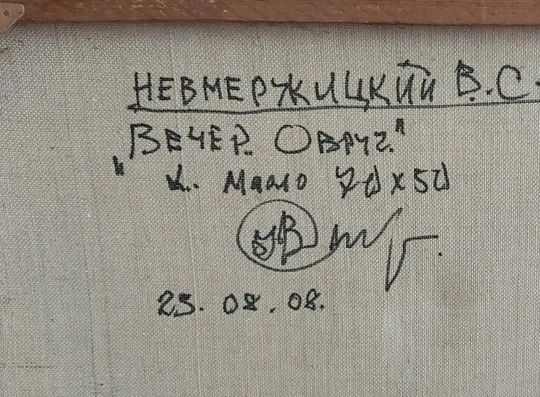 НЕВМЕРЖИЦКИЙ В.С.
"ВЕЧЕР. ОВРУЧ."
х. масло 70 х 50
23. 08. 08.